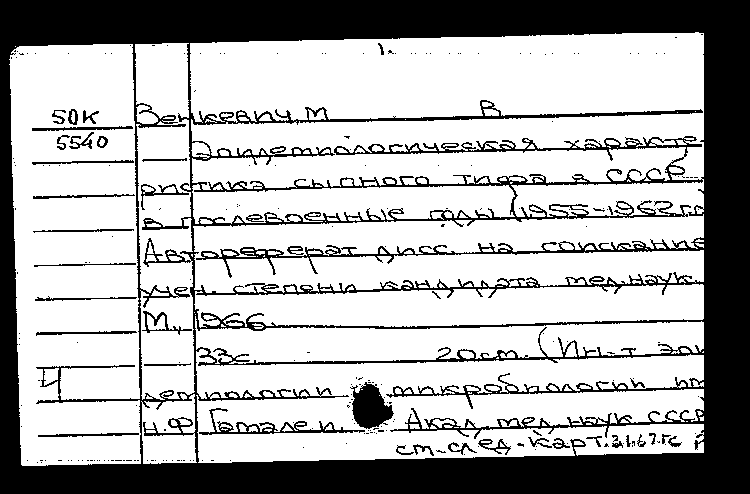 1.
50К Зенкевич, М В
5540 Эпидемиологическая характе-
ристика сыпного тифа в СССР
в послевоенные годы (1955-1962гг)
Автореферат дисс. на соискание
учен. степени кандидата мед. наук.
М., 1966.
33с. 20см. (Ин-т эпи
Ч демиологии микробиологии им
Н.Ф Гамалеи. Акад. мед. наук СССР
см. след. карт. 3.1.67.гс